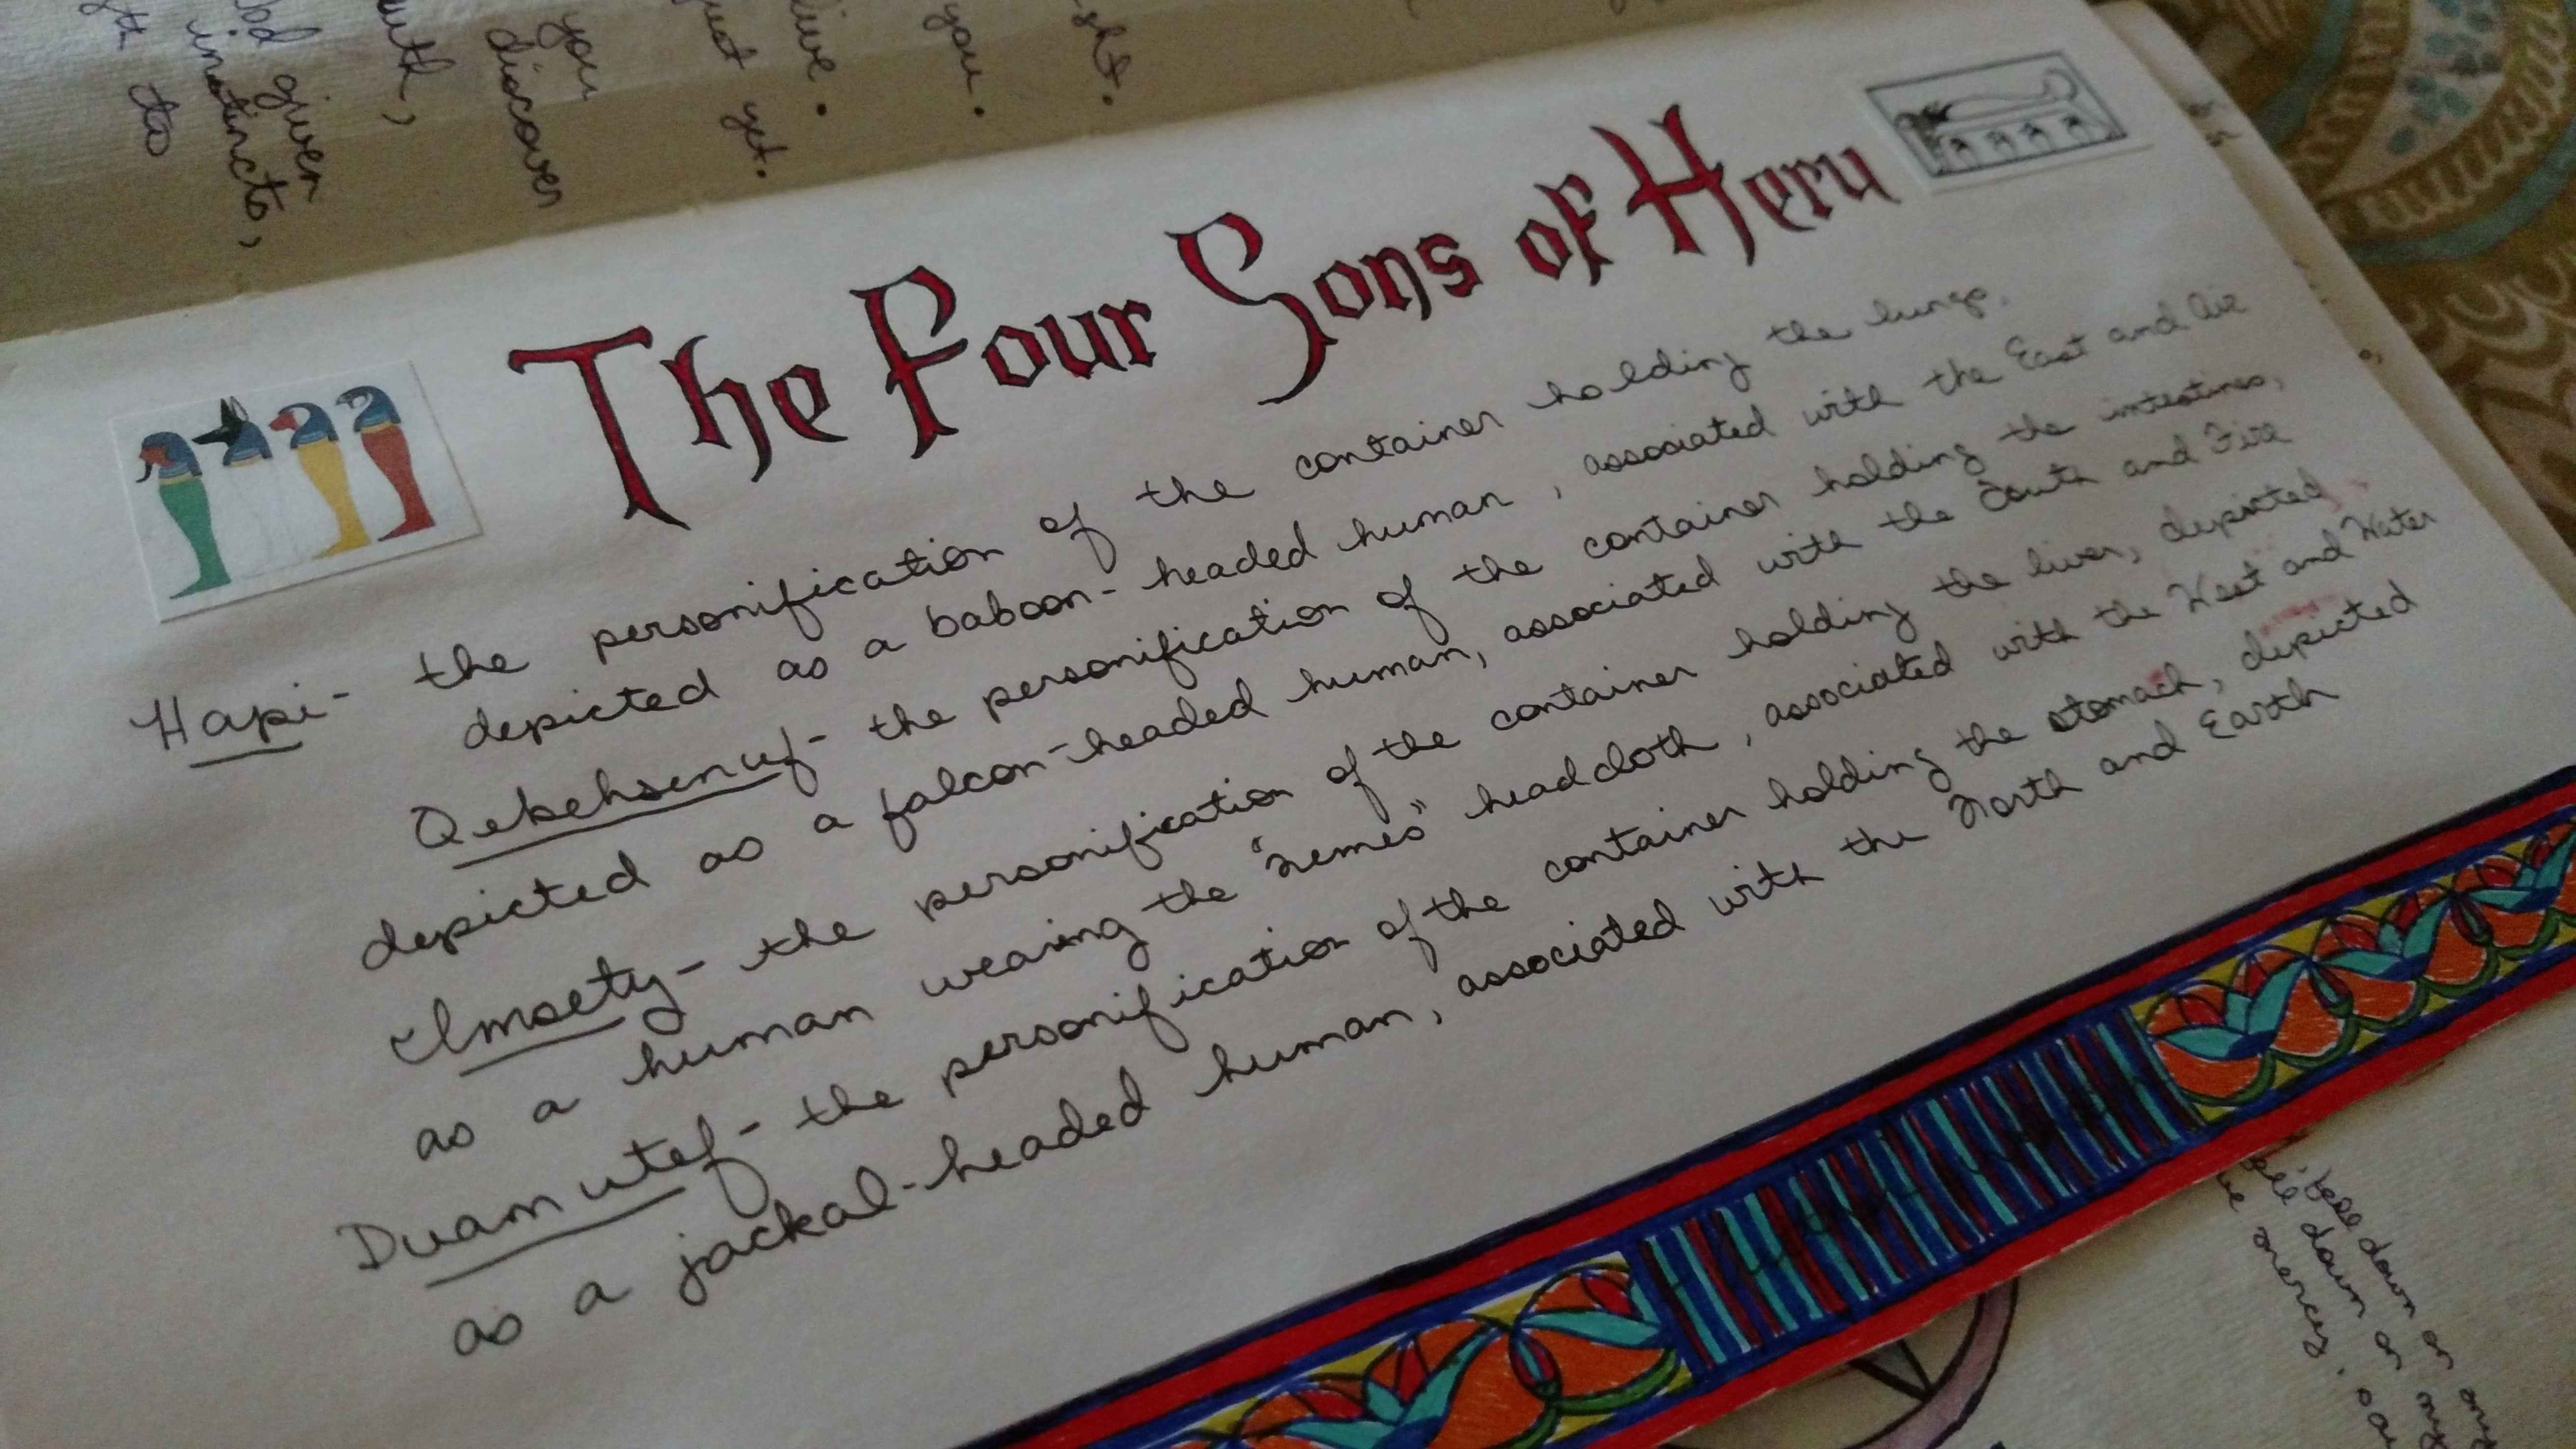 ght.
you.
live.
just yet.
you
discover
uth,
od given
instincts,
to
The Four Sons of Heru
Hapi - the personification of the container holding the lungs,
depicted as a baboon-headed human, associated with the East and Air
Qebehsenuf - the personification of the container holding the intestines,
depicted as a falcon-headed human, associated with the South and Fire
Imsety - the personification of the container holding the liver, depicted
as a human wearing the "nemes" headcloth, associated with the West and Water
Duamutef - the personification of the container holding the stomach, depicted
as a jackal-headed human, associated with the North and Earth
down on my
down on my
mercy.